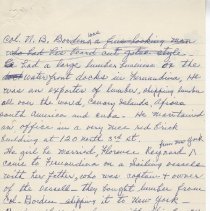 Col. W. B. Bordens was a fine looking man
who had his beard cut gotee style.
He had a large lumber business on the
waterfront docks in Fernandina. He
was an exporter of lumber, shipping lumber
all over the world, Canary Islands, Africa
South America and Cuba. He maintained
an office in a very nice red brick
building at 120 north 3rd St.
from New York
The girl he married, Florence Reynard,
came to Fernandina on a sailing vessels
with her father, who was captain & owner
of the vessels - they bought lumber from
Col. Borden shipping it to New York.